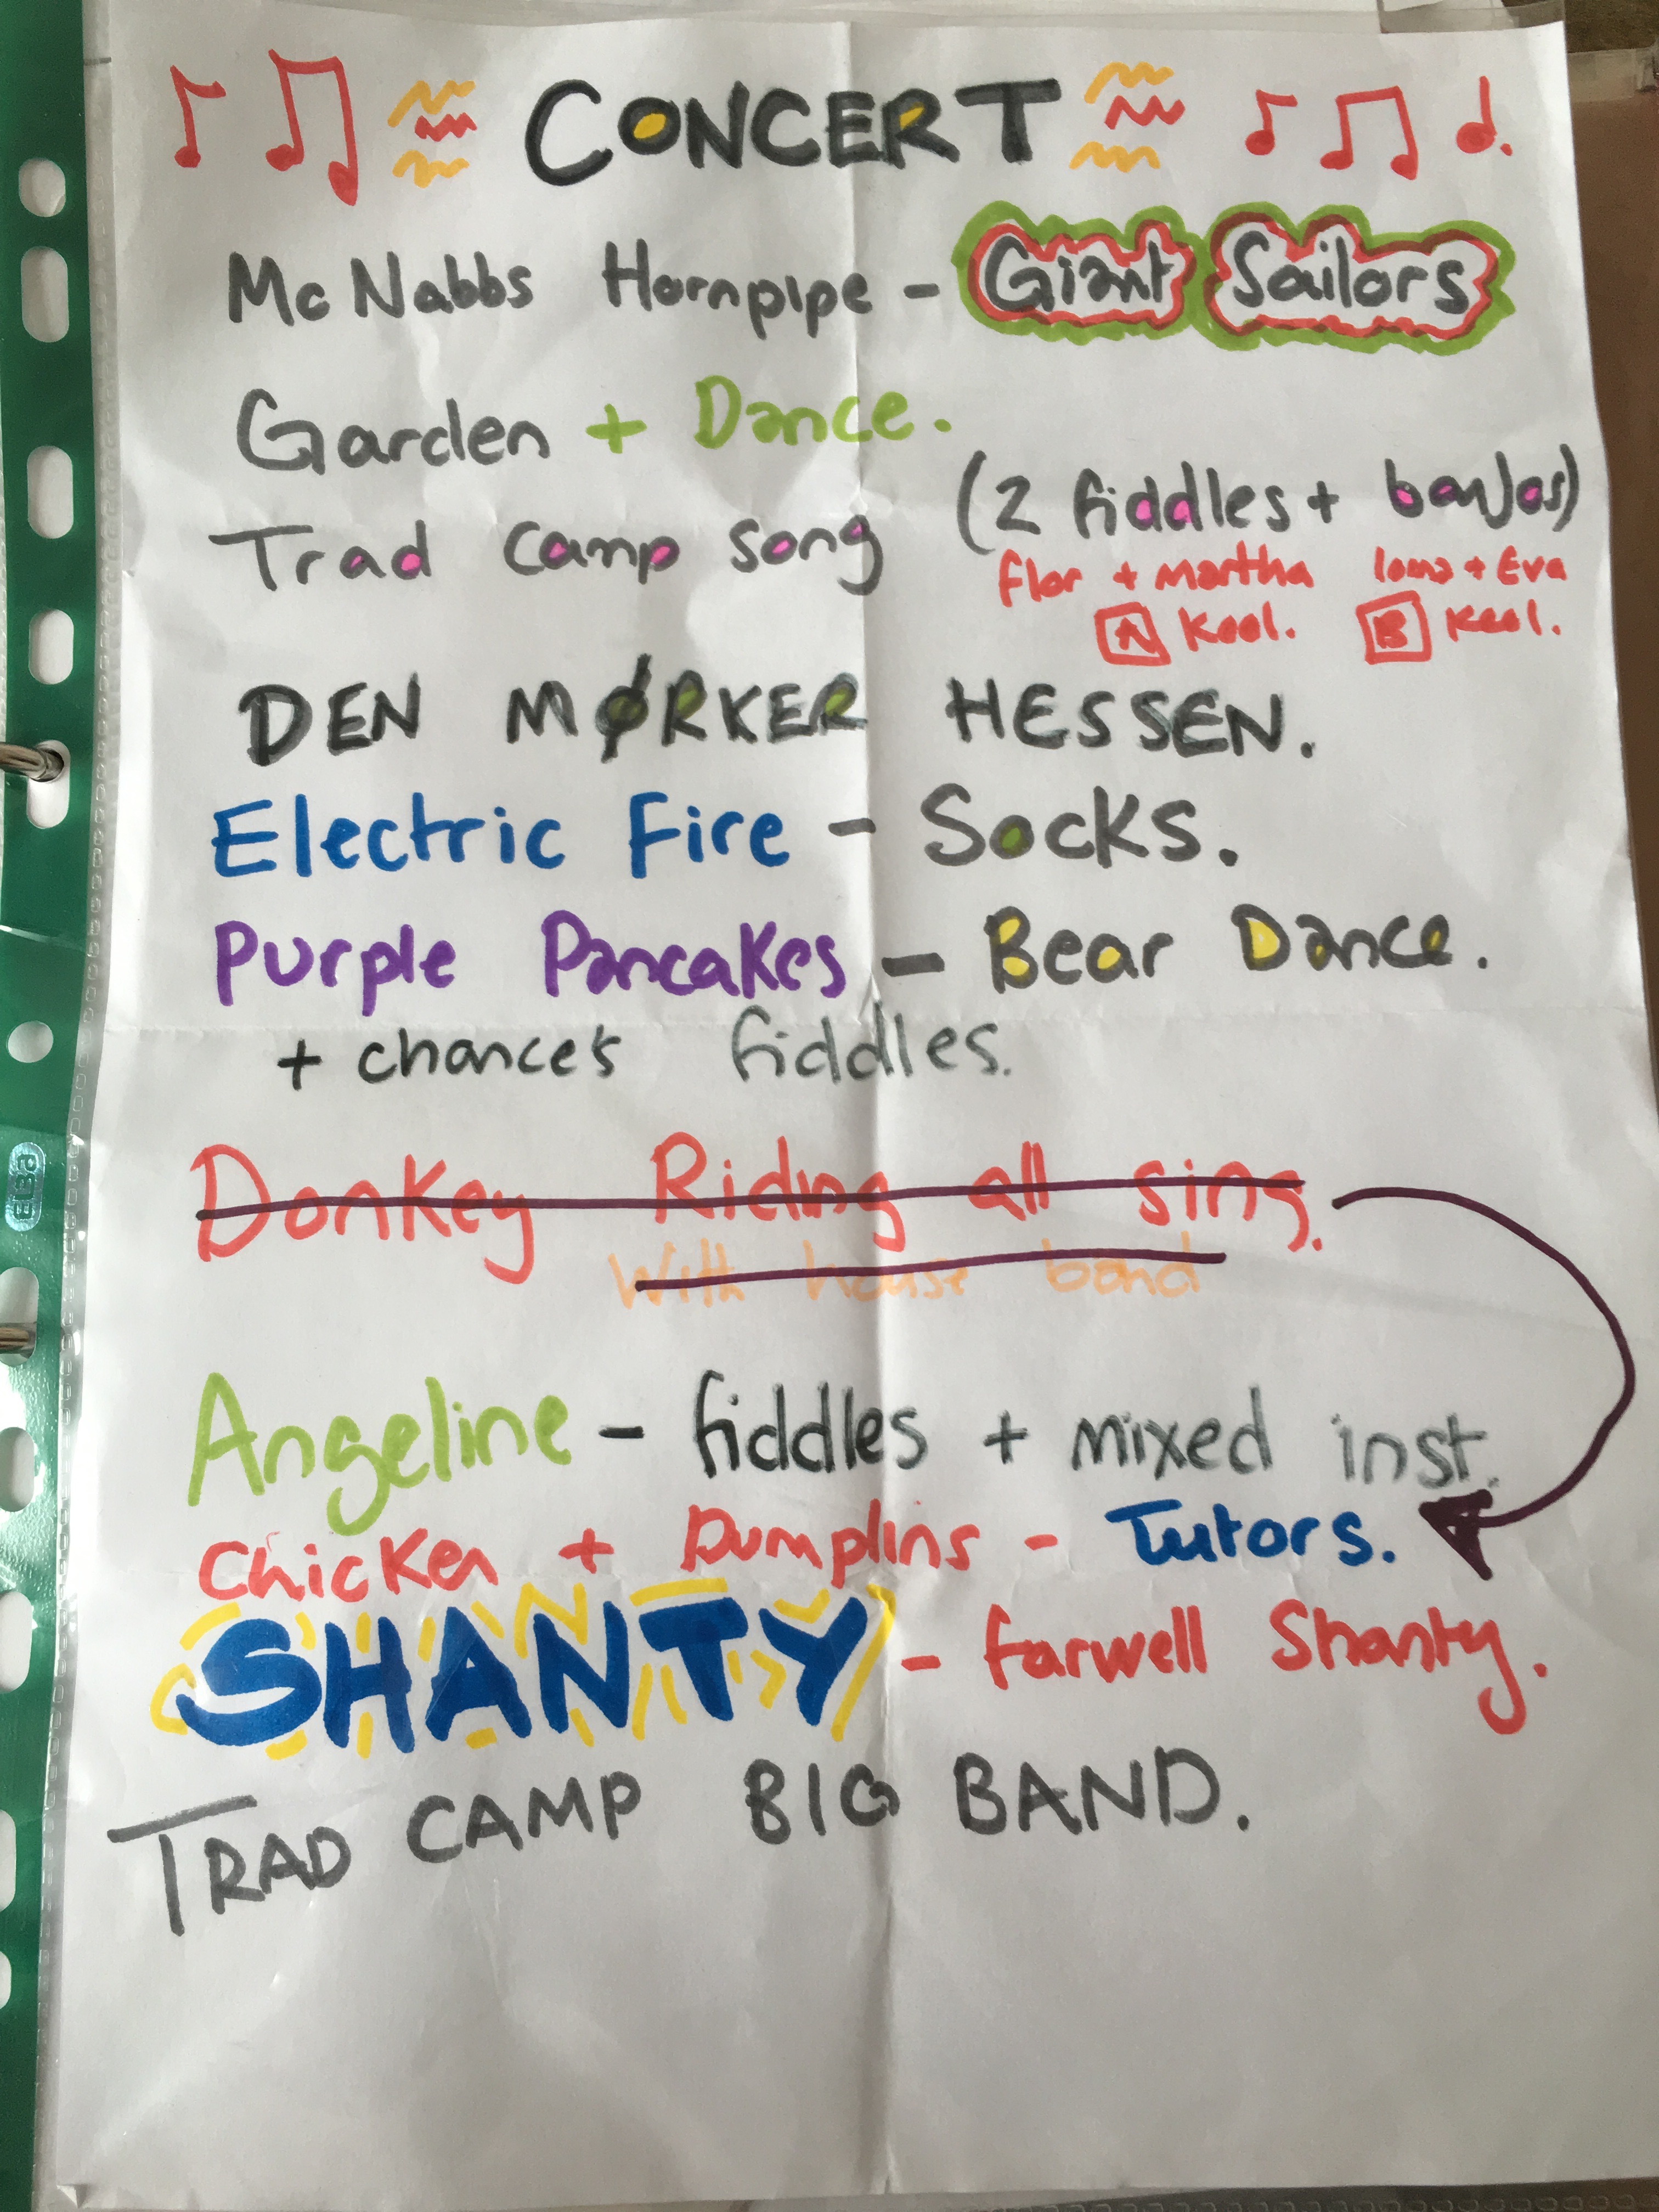 CONCERT
Mc Nabbs Hornpipe - Giant Sailors
Garden + Dance.
Trad Camp Song (2 fiddles + banjos)
flor + martha Iona + Eva
A Keel. B Keel.
DEN MØRKER HESSEN.
Electric Fire - Socks.
Purple Pancakes - Bear Dance.
+ chance's fiddles.
Donkey Riding all sing.
With house band
Angeline - fiddles + mixed inst.
Chicken + Dumplins - Tutors.
SHANTY - farwell Shanty.
TRAD CAMP BIG BAND.
ELBA